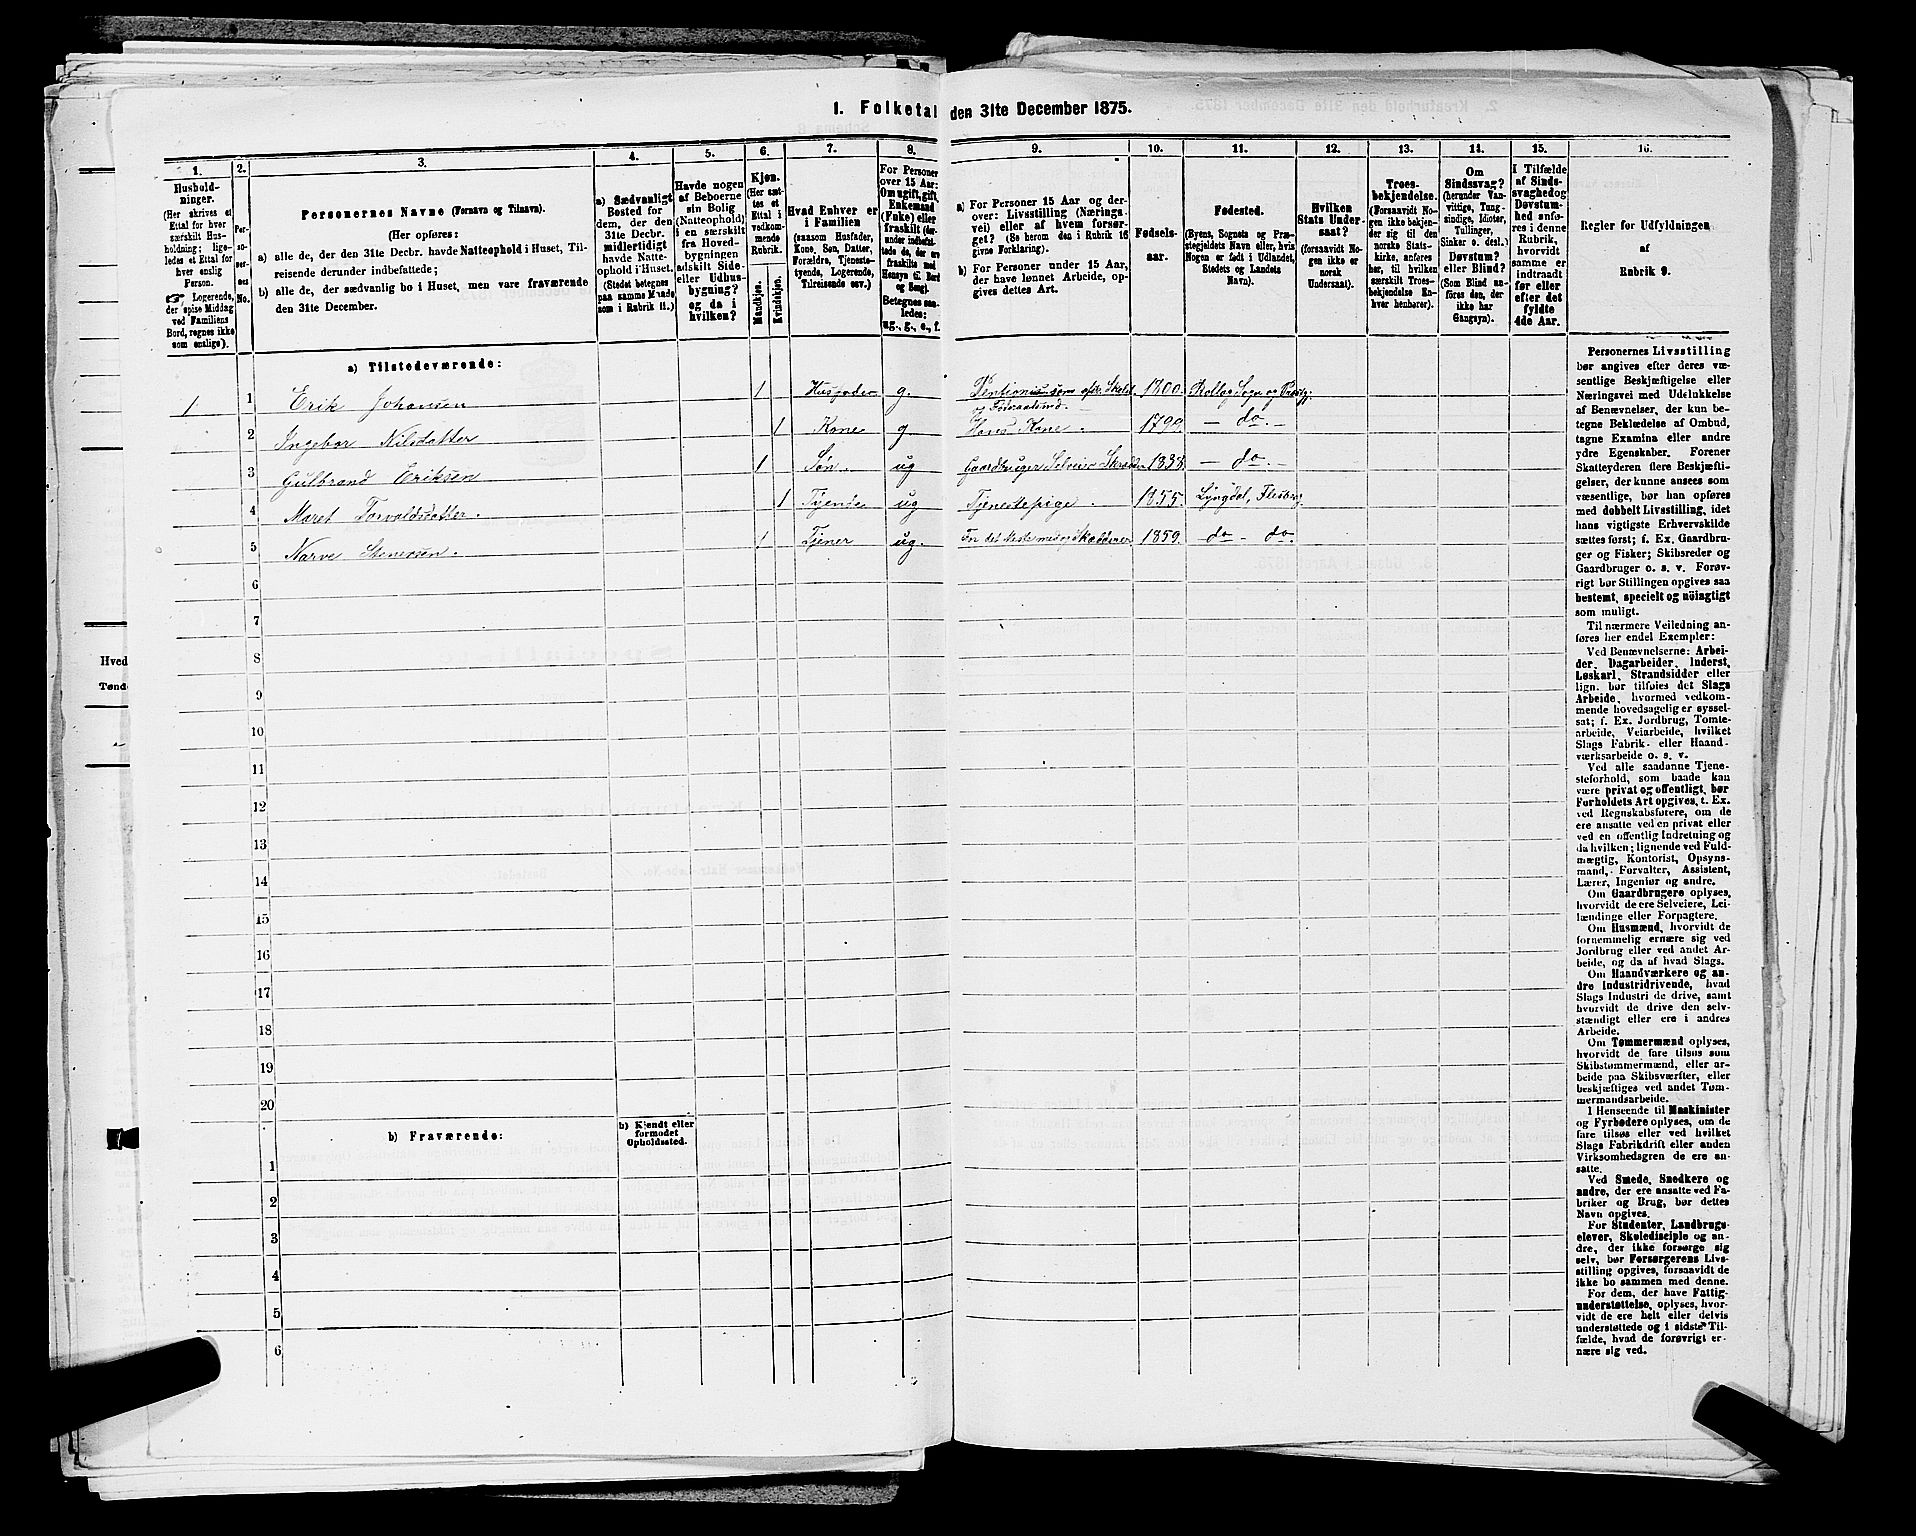 1. Folketal den 31te December 1875.
1. 2. 3. 4. 5. 6. 7. 8. 9. 10. 11. 12. 13. 14. 15. 16.
Hushold-
ninger.
(Her skrives et
Ettal for hver
særskilt Hus-
holdning; lige-
ledes et Ettal for
hver enslig
Person.
☞ Logerende,
der spise Middag
ved Familiens
Bord, regnes ikke
som enslige).
Per-
so-
ner-
nes
No.
Personernes Navne (Fornavn og Tilnavn).
(Her opføres:
a) alle de, der den 31te Decbr. havde Natteophold i Huset, Til-
reisende derunder indbefattede;
b) alle de, der sædvanlig bo i Huset, men vare fraværende
den 31te December.
a) Sædvanligt
Bosted for
dem, der den
31te Decbr.
midlertidigt
havde Natte-
ophold i Huset.
(Stedet betegnes
paa samme Maade
som i Rubrik 11.)
Havde nogen
af Beboerne
sin Bolig
(Natteophold)
i en særskilt
fra Hoved-
bygningen
adskilt Side-
eller Udhus-
bygning?
og da i
hvilken?
Kjøn.
(Her sæt-
tes et
Ettal i
vedkom-
mende
Rubrik.
Mandkjøn.
Kvindekjøn.
Hvad Enhver er
i Familien
(saasom Husfader,
Kone, Søn, Datter,
Forældre, Tjeneste-
tyende, Logerende,
Tilreisende osv.)
For Personer
over 15 Aar:
Om ugift, gift,
Enkemand
(Enke) eller
fraskilt (der-
under indbefat-
tede de, der ere
fraskilte med
Hensyn til Bord
og Seng).
Betegnes saa-
ledes:
ug., g., e., f.
a) For Personer 15 Aar og der-
over: Livsstilling (Nærings-
vei) eller af hvem forsør-
get? (Se herom den i Rubrik 16
givne Forklaring).
b) For Personer under 15 Aar,
der have lønnet Arbeide, op-
gives dettes Art.
Fødsels-
aar.
Fødested.
(Byens, Sognets og Præ-
stegjeldets Navn eller, hvis
Nogen er født i Udlandet,
Stedets og Landets
Navn).
Hvilken
Stats Under-
saat?
(forsaavidt No-
gen ikke er
norsk
Undersaat).
Troes-
bekjendelse.
(Forsaavidt No-
gen ikke bekjen-
der sig til den
norske Stats-
kirke, anføres
her, til hvilken
særskilt Troes-
bekjendelse En-
hver henhører).
Om
Sindssvag?
(herunder Van-
vittige, Tung-
sindige, Idioter,
Tullinger,
Sinker o. desl.)
Døvstum?
eller Blind?
(Som Blind an-
føres den, der
ikke har
Gangsyn).
I Tilfælde
af Sinds-
svaghed og
Døvstum-
hed anfø-
res i denne
Rubrik,
hvorvidt
samme er
indtraadt
før eller
efter det
fyldte
4de Aar.
Regler for Udfyldningen
af
Rubrik 9.
a) Tilstedeværende:
1 1 Erik Johansen 1 Husfader g.
og Føderaadsmd. 1800. Rollag Sogn og Præstgj.
2 Ingebor Nilsdatter 1 Kone g Hans Kone. 1799. — do. —
3 Gulbrand Eriksen 1 Søn ug Gaardbruger Selveier 1838. — do. —
4 Maret Torvaldsdatter. 1 Tyende ug Tjenestepige. 1855. Lyngdal, Flesberg
5 Narve Stenersen. 1 Tjener ug. 1859. — do — do.
6
7
8
9
10
11
12
13
14
15
16
17
18
19
20
b) Fraværende:
b) Kjendt eller
formodet
Opholdssted.
1
2
3
4
5
6
Personernes Livsstilling
bør angives efter deres væ-
sentlige Beskjæftigelse eller
Næringsvei med Udelukkelse
af Benævnelser, der kun be-
tegne Beklædelse af Ombud,
tagne Examina eller andre
ydre Egenskaber. Forener
Skatteyderen flere Beskjæfti-
gelser, der kunne ansees som
væsentlige, bør han opføres
med dobbelt Livsstilling, idet
hans vigtigste Erhvervskilde
sættes først; f. Ex. Gaardbru-
ger og Fisker; Skibsreder og
Gaardbruger o. s. v. Forøv-
rigt bør Stillingen opgives saa
bestemt, specielt og nöiagtigt
som muligt.
Til nærmere Veiledning an-
føres her endel Exempler:
Ved Benævnelserne: Arbei-
der, Dagarbeider, Inderst,
Løskarl, Strandsidder eller
lign. bør tilføies det Slags
Arbeide, hvormed vedkom-
mende hovedsagelig er syssel-
sat; f. Ex. Jordbrug, Tomte-
arbeide, Veiarbeide, hvilket
Slags Fabrik- eller Haand-
værksarbeide o. s. v.
Ved alle saadanne Tjene-
steforhold, som baade kan
være privat og offentligt, bør
Forholdets Art opgives, t. Ex.
ved Regnskabsførere, om de
ere ansatte ved en privat eller
ved en offentlig Indretning og
da hvilken; lignende ved Fuld-
mægtig, Kontorist, Opsyns-
mand, Forvalter, Assistent,
Lærer, Ingeniør og andre.
Om Gaardbrugere oplyses,
hvorvidt de ere Selveiere, Lei-
lændinge eller Forpagtere.
Om Husmænd, hvorvidt de
fornemmelig ernære sig ved
Jordbrug eller ved andet Ar-
beide, og da af hvad Slags.
Om Haandværkere og an-
dre Industridrivende, hvad
Slags Industri de drive, samt
hvorvidt de drive den selv-
stændigt eller ere i andres
Arbeide.
Om Tømmermænd oplyses,
hvorvidt de fare tilsøs som
Skibstømmermænd, eller ar-
beide paa Skibsværfter, eller
beskjæftiges ved andet Tøm-
mermandsarbeide.
I Henseende til Maskinister
og Fyrbødere oplyses, om de
fare tilsøs eller ved hvilket
Slags Fabrikdrift eller anden
Virksomhedsgren de ere an-
satte.
Ved Smede, Snedkere og
andre, der ere ansatte ved Fa-
briker og Brug, bør dettes
Navn opgives.
For Studenter, Landbrugs-
elever, Skoledisciple og an-
dre, der ikke forsørge sig
selv, bør Forsørgerens Livs-
stilling opgives, forsaavidt de
ikke bo sammen med denne.
For dem, der have Fattig-
understøttelse, oplyses, hvor-
vidt de ere helt eller delvis
understøttede og i sidste Til-
fælde, hvad de forøvrigt er-
nære sig ved.
Hved
Tønde